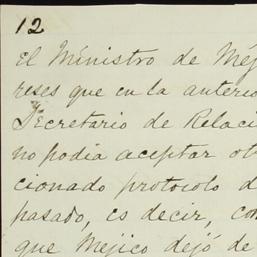 12
El Ministro de Méj
reses que en la anterio
y Secretario de Relaci
no podia aceptar ot
cionado protocolo d
pasado, es decir, con
que Mejico dejó de